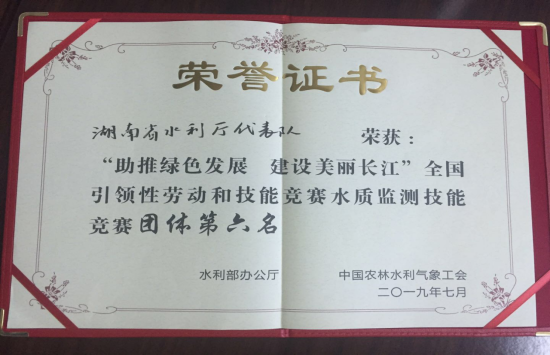 荣誉证书
湖南省水利厅代表队 荣获：
“助推绿色发展 建设美丽长江”全国
引领性劳动和技能竞赛水质监测技能
竞赛团体第六名
水利部办公厅 中国农林水利气象工会
二〇一九年七月